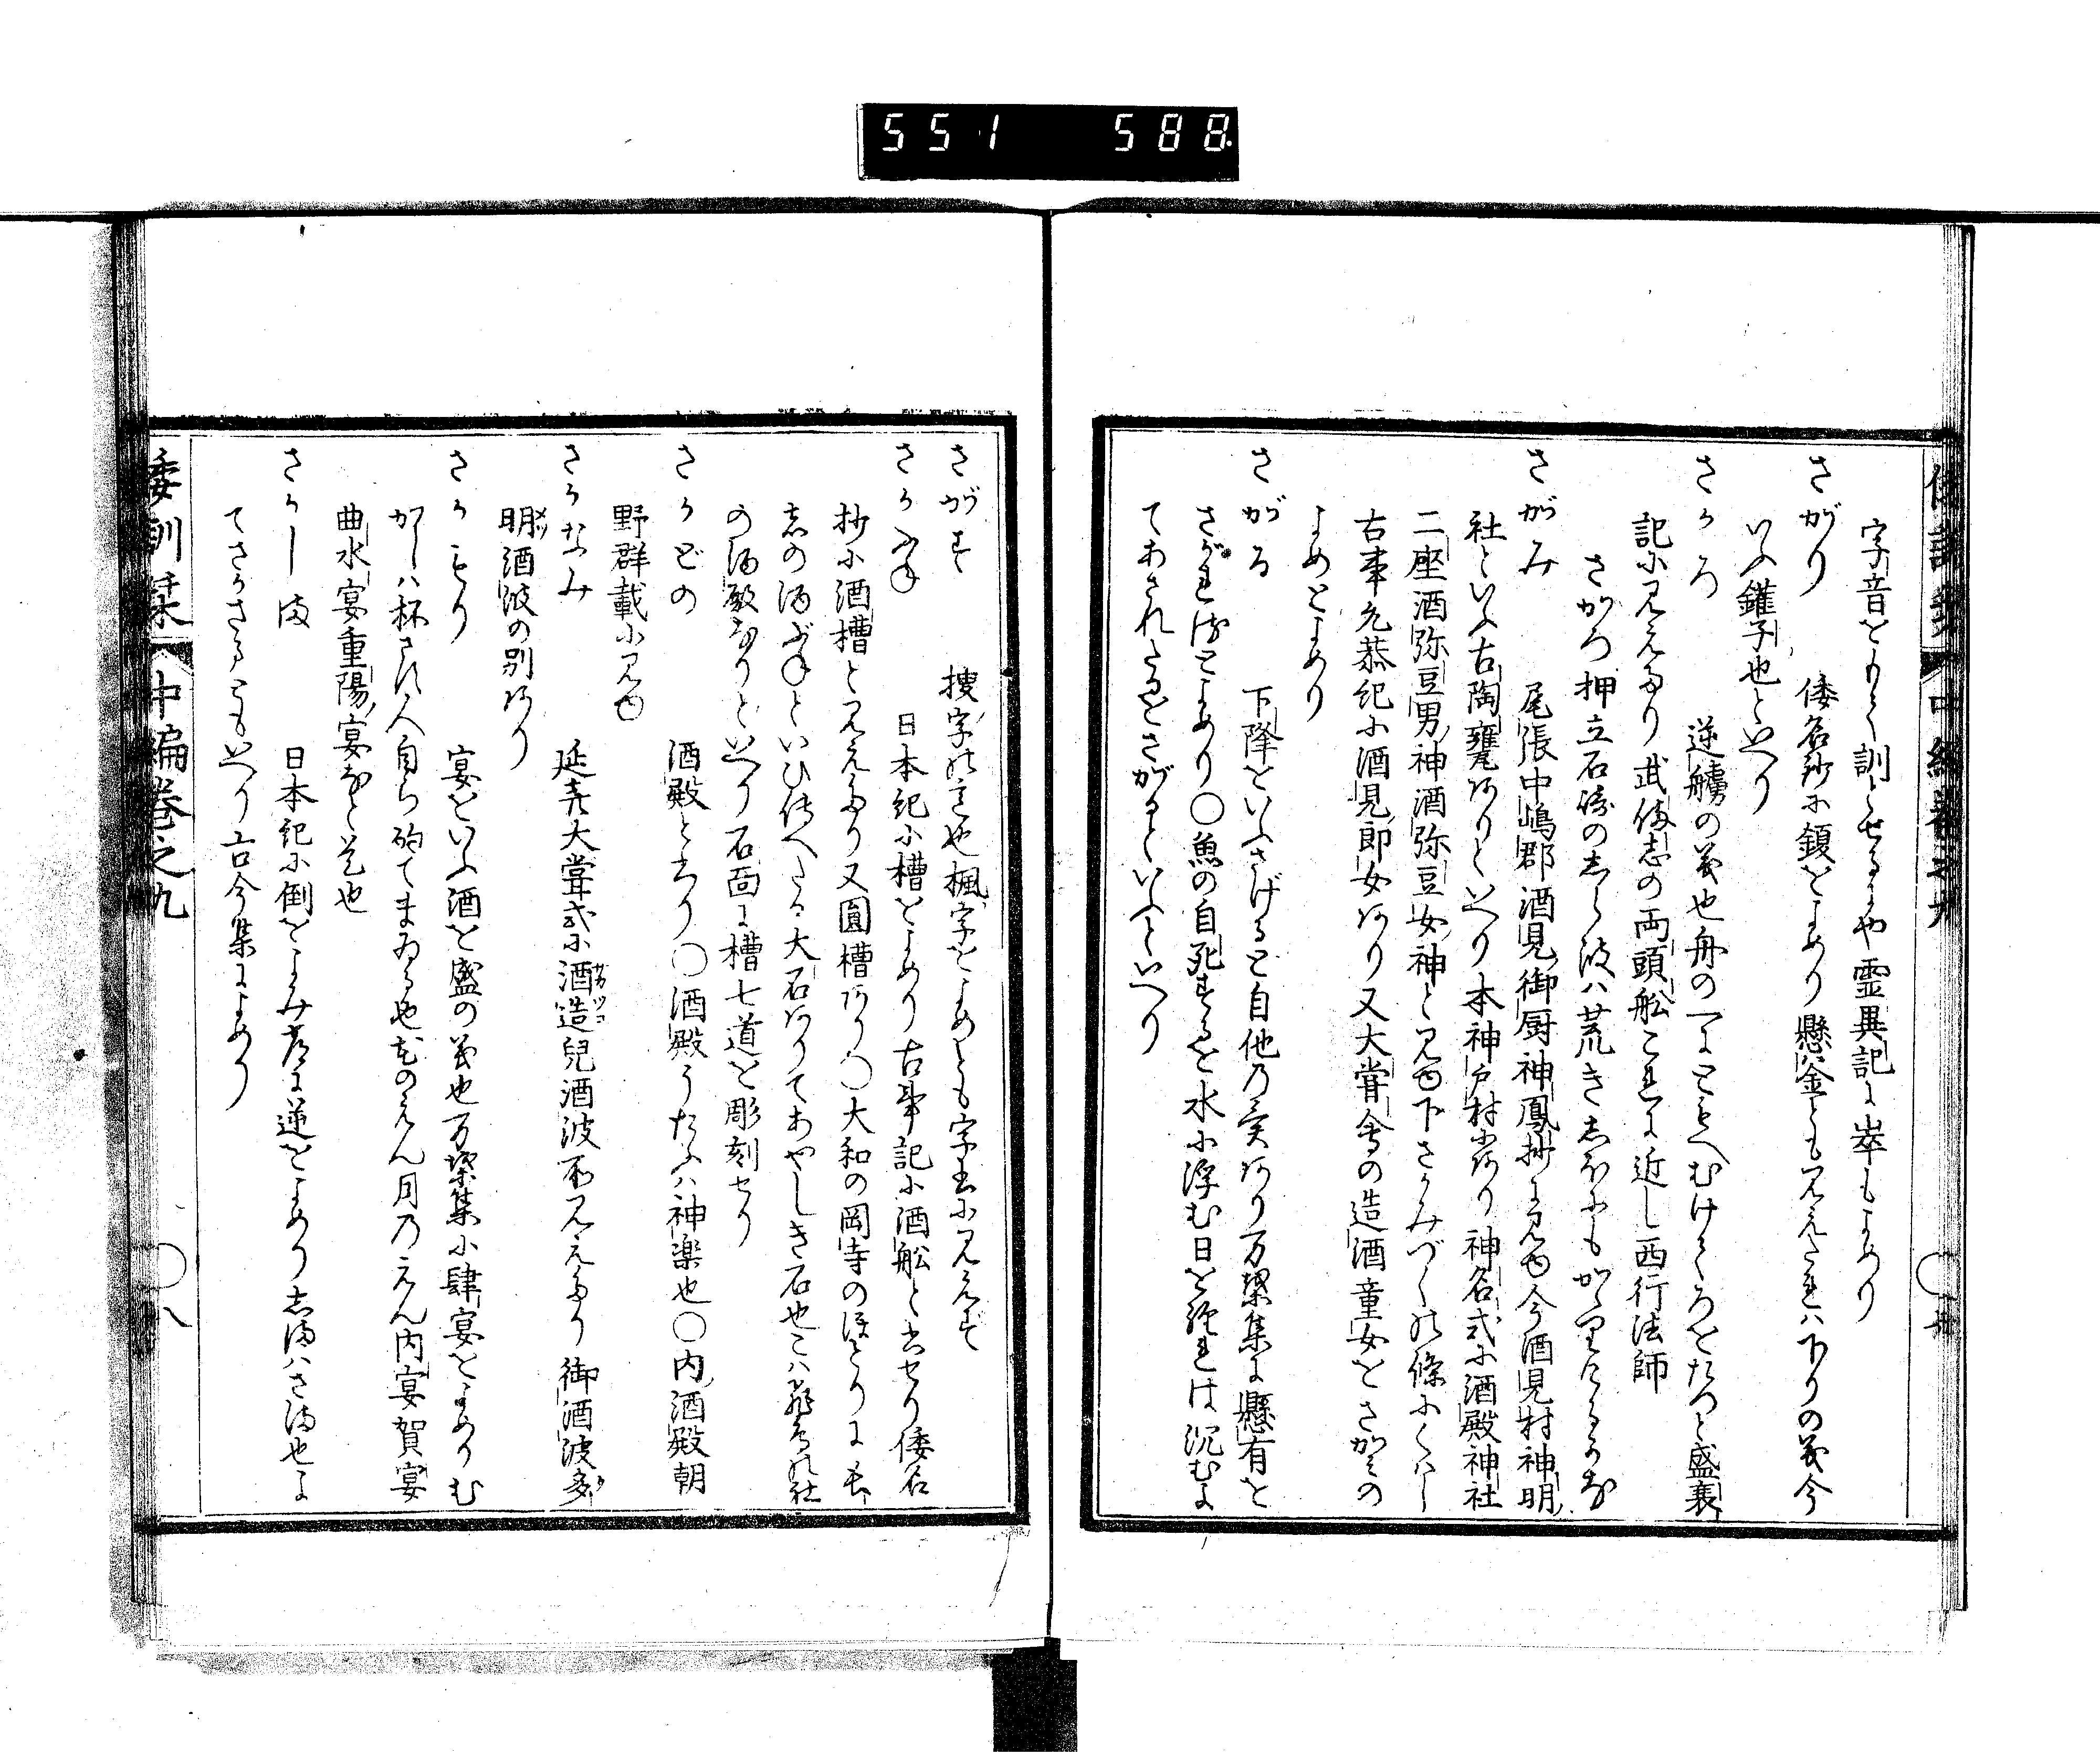 551 588
字音をもて訓とせるにや霊異記に崒もよめり
さがり 倭名鈔に鎖をよめり懸金とも見えたれハ下りの義今
いふ鑵子也といへり
さかろ 逆艫の義也舟のへにともへむけてろをたつと盛衰
記に見えたり武備志の両頭舩これに近し西行法師
さかろ押立石
のしら波ハ荒きしほにも
さがみ 尾張中嶋郡酒見御厨神鳳抄に見ゆ今酒見村神明
社といふ古陶甕ありといへり本神戸村にあり神名式に酒殿神社
二座酒弥豆男神酒弥豆女神と見ゆ下さかみづくの條にくはし
古事允恭紀に酒見郎女あり又大甞会の造酒童女をさかみの
よめとよめり
さがる 下降をいふさげると自他の変あり万葉集に懸有を
さがれるとよめり○魚の自死するを水に浮む日を経れは沉むよ
てあされたるをさがるといふといへり
さがす 捜字の意也楓字をよめとも字書に見えず
さかふね 日本紀に槽をよめり古事記に酒舩と書せり倭名
抄に酒槽と見えたり又圓槽あり○大和の岡寺のほとりに長
者の酒ぶねといひ伝へたる大石ありてあやしき石也こハ
の社
の酒殿なりといへり石面に槽七道を彫刻せり
さかどの 酒殿と書り○酒殿うたふハ神楽也○内酒殿朝
野群載に見ゆ
さかなみ 延喜大甞式に酒造兒酒波木見えたり御酒波多
明酒波の別あり
さかもり 宴をいふ酒を盛の義也万葉集に肆宴をよめりむ
かしハ杯さす人自ら酌てまゐる也花のえん月のえん内宴賀宴
曲水宴重陽宴なと是也
さかしま 日本紀に倒をよみ
に逆をよめりしまハさま也よ
てさかさまにもいへり古今集によめり
倭訓栞 中編巻之九 ○八